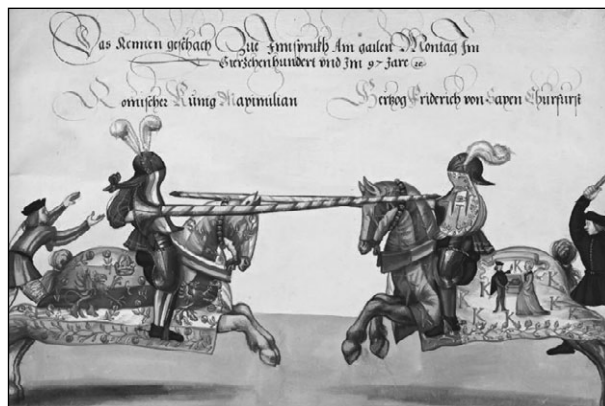 Das Rennen geschach Zue Innspruckh Am gailen Montag Im
Vierzehenhundert vnd Im 97 Jare
Romischer Künig Maximilian
Hertzog Friderich von Saxen Churfürst
K K
K K
K K K